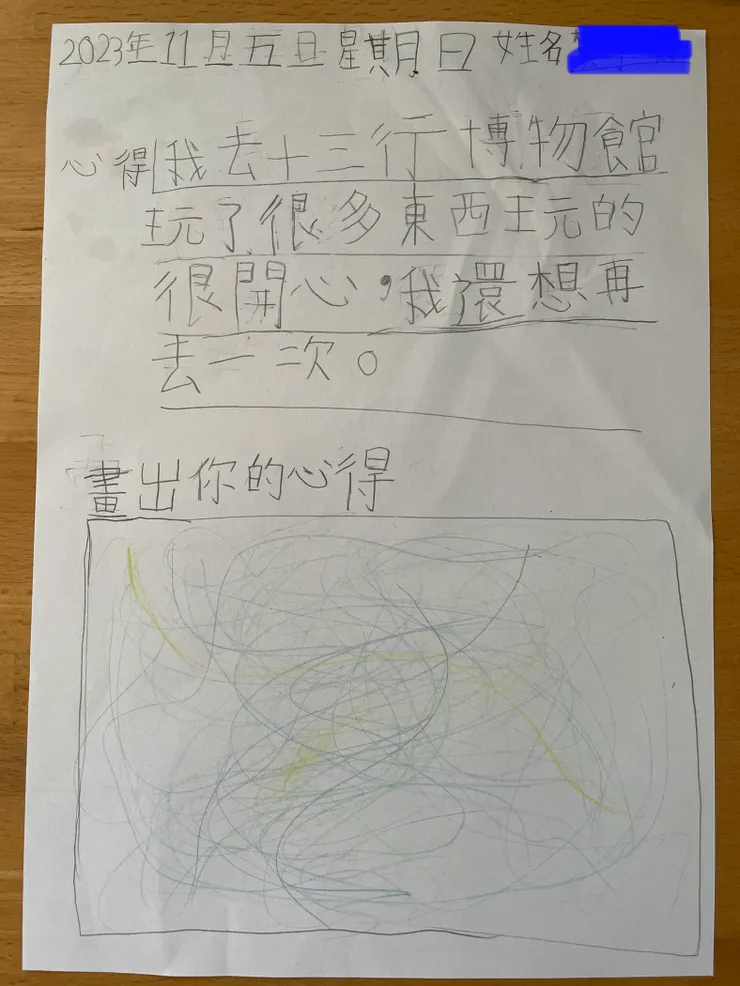 2023年11月五日星期日 姓名
心得 我去十三行博物館
玩了很多東西玩的
很開心,我還想再
去一次。
畫出你的心得